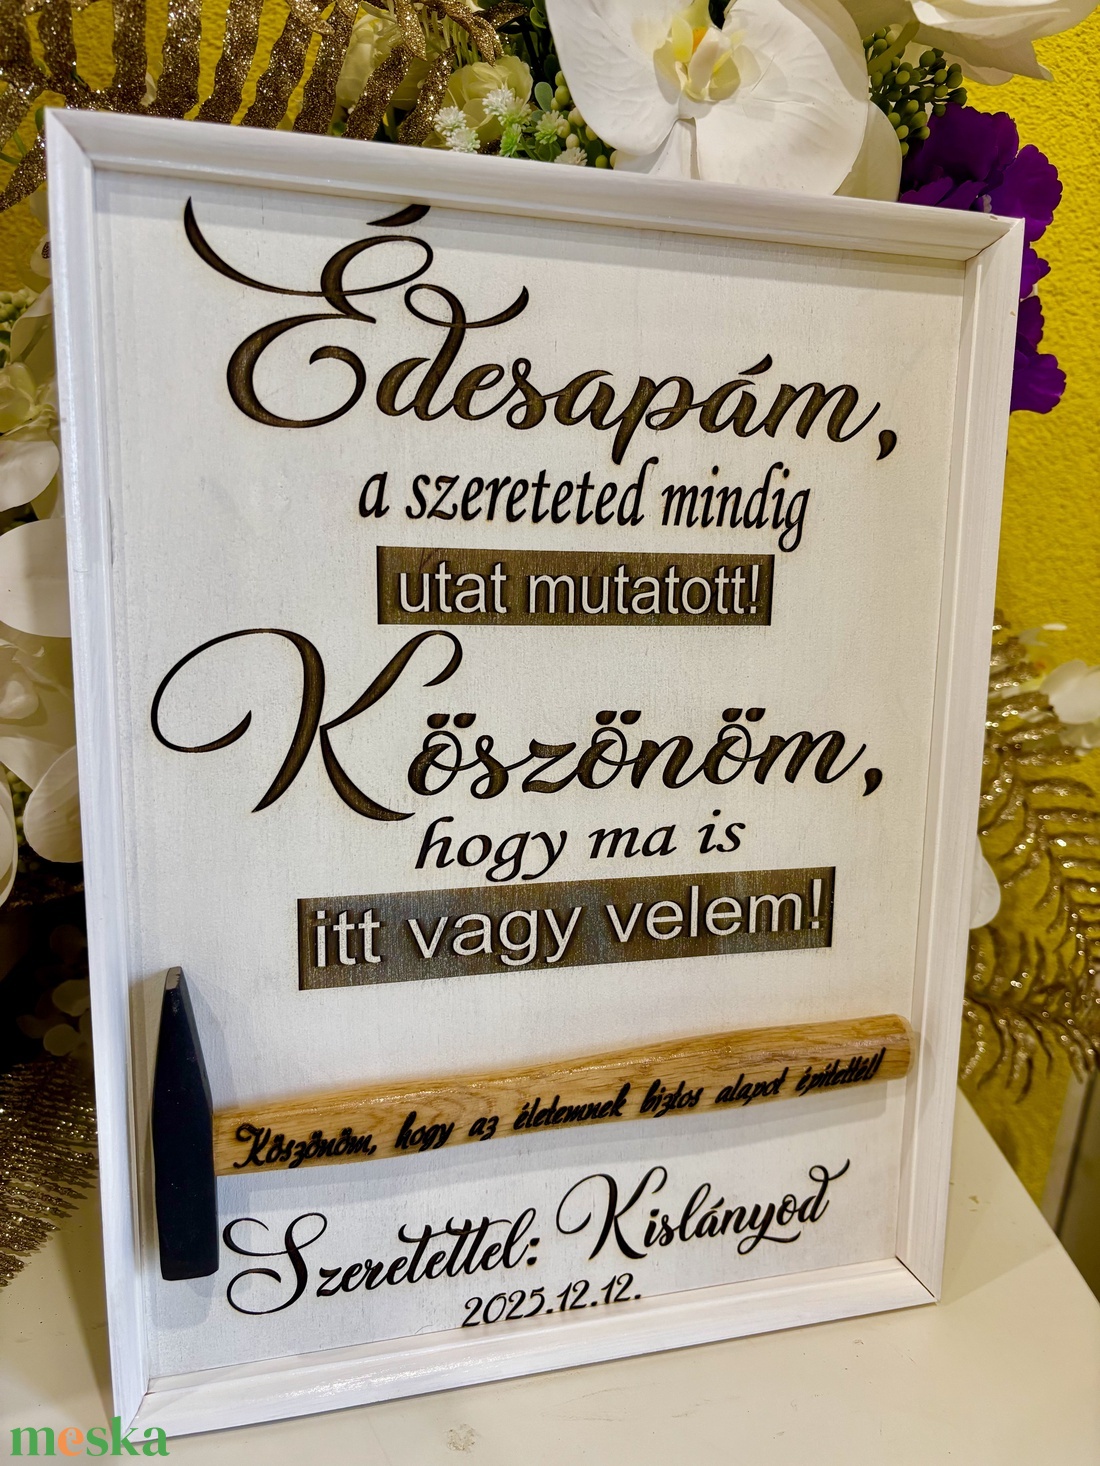 Édesapám,
a szereteted mindig
utat mutatott!
Köszönöm,
hogy ma is
itt vagy velem!
Köszönöm, hogy az életemnek biztos alapot építettél!
Szeretettel: Kislányod
2025.12.12.
meska